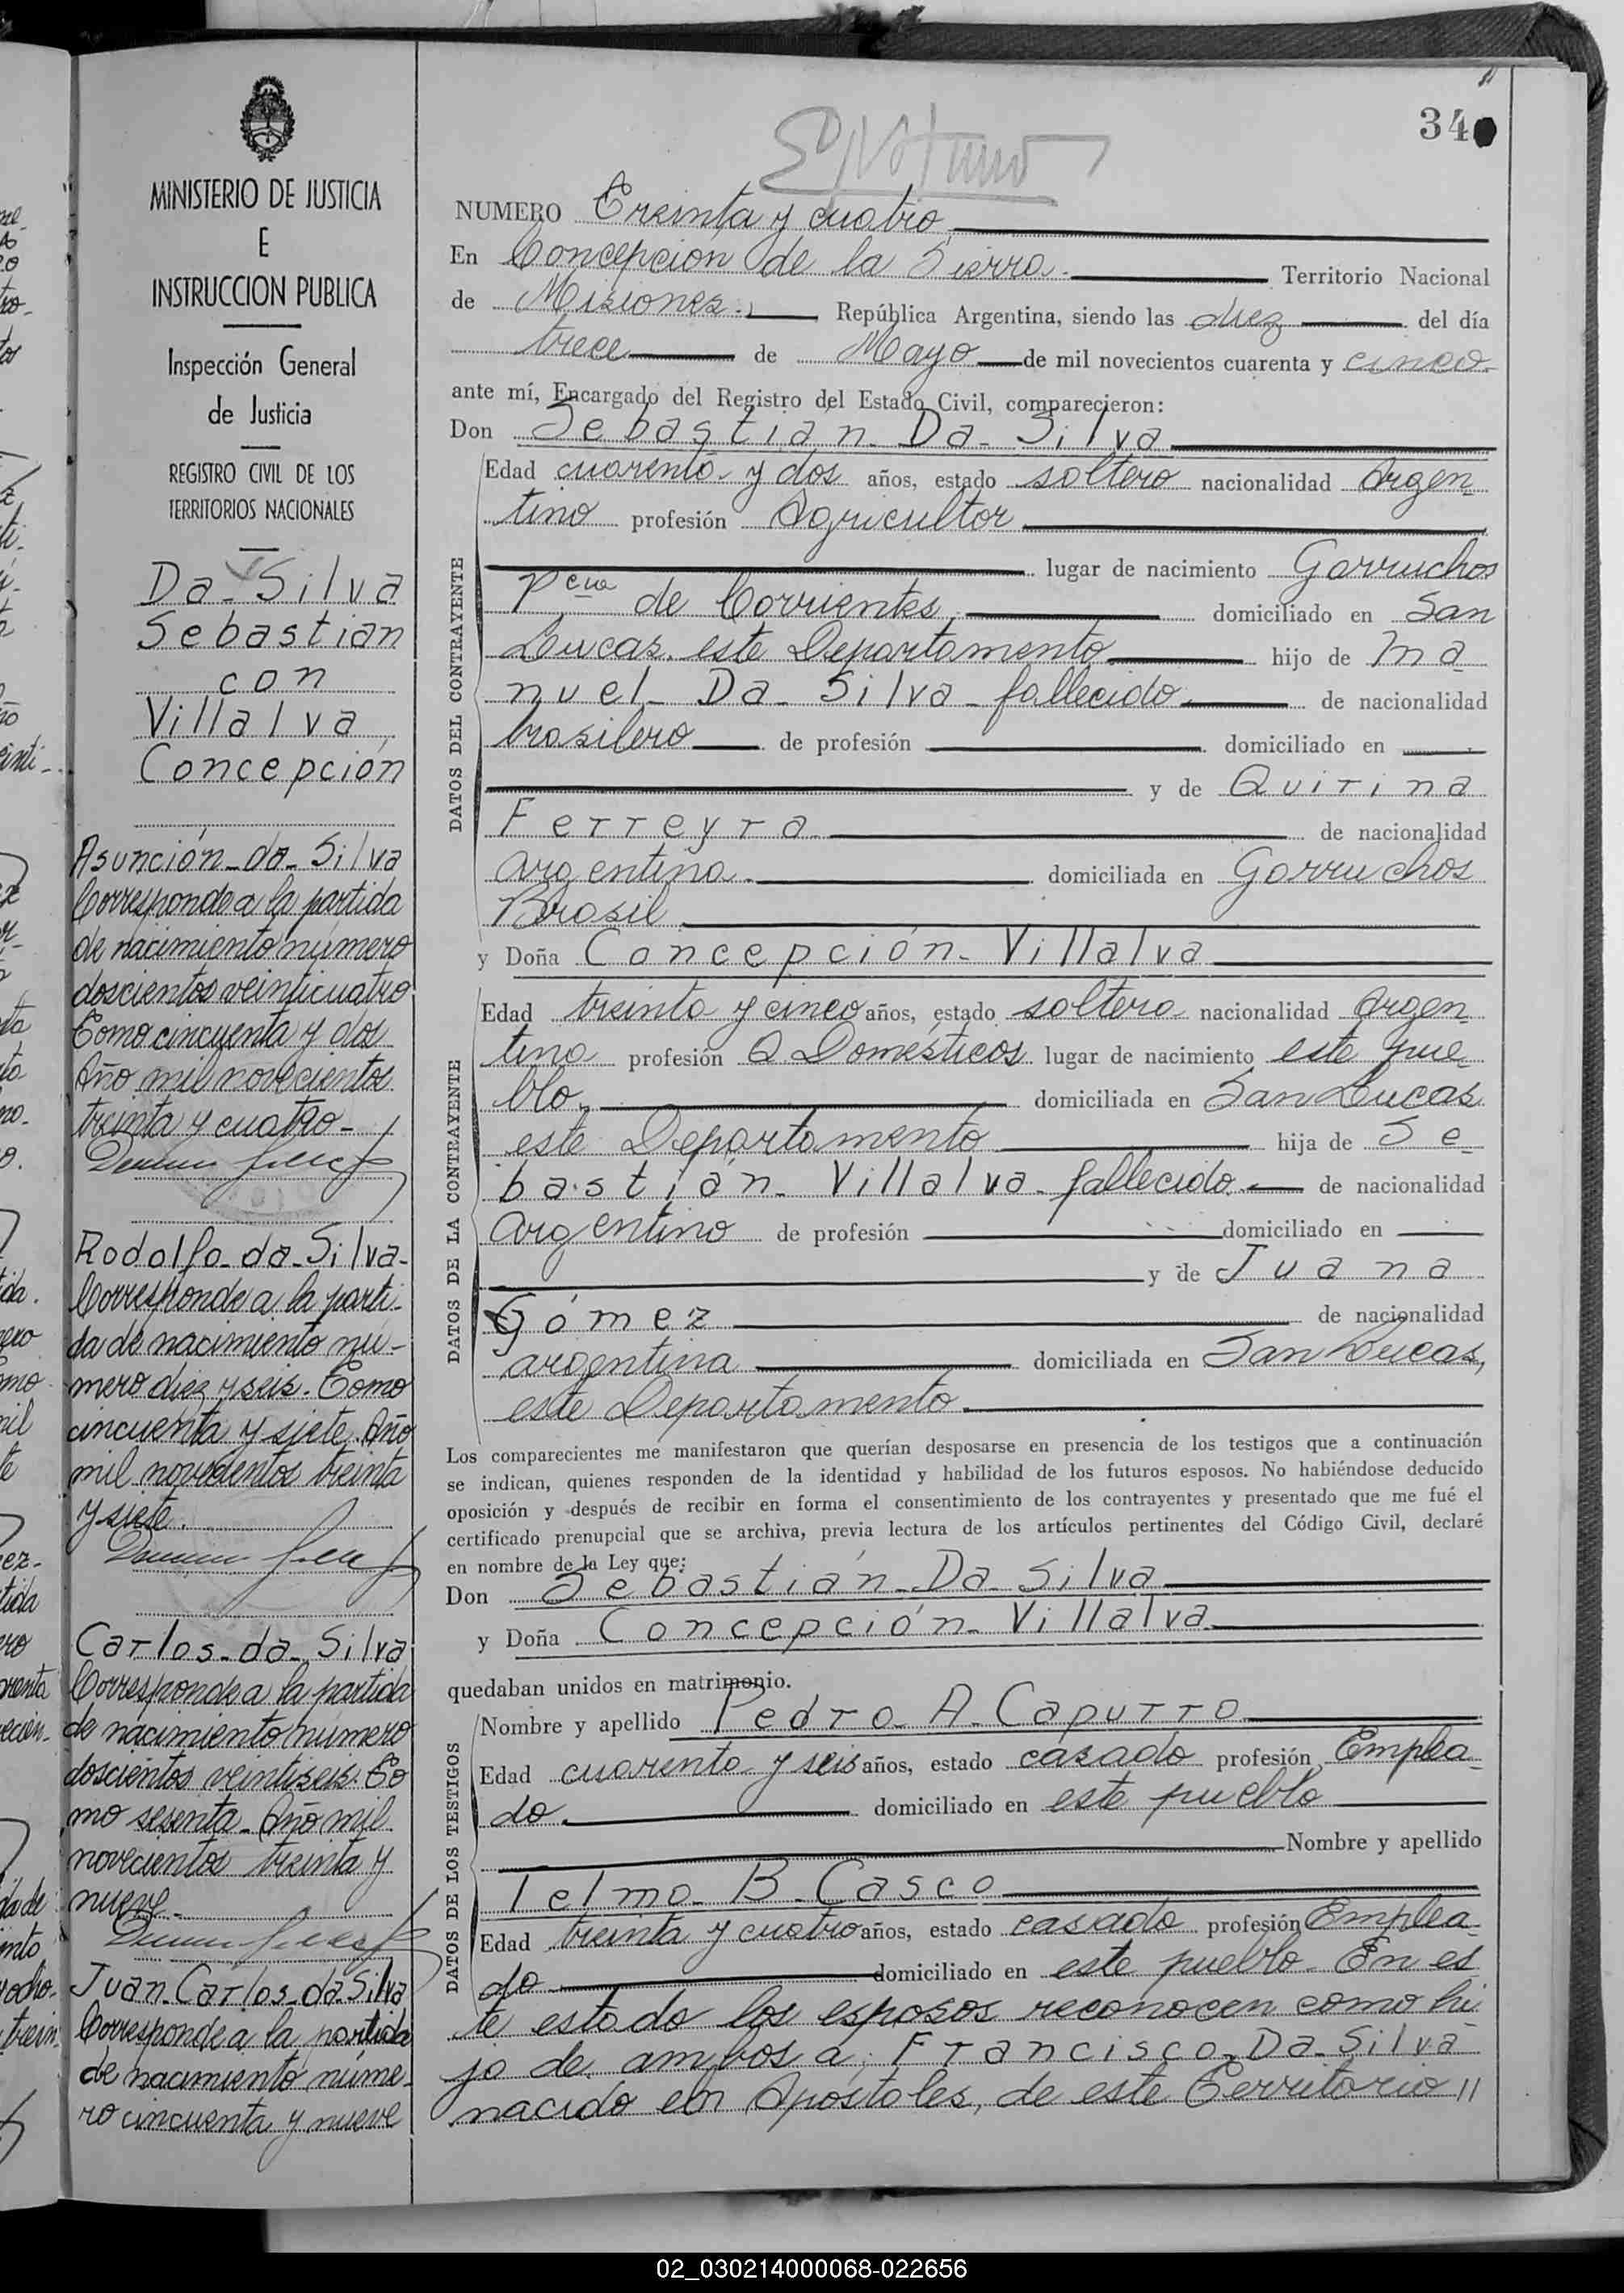 MINISTERIO DE JUSTICIA
E
INSTRUCCION PUBLICA
Inspección General
de Justicia
REGISTRO CIVIL DE LOS
TERRITORIOS NACIONALES
Da-Silva
Sebastian
con
Villalva
Concepción
Asunción-da-Silva
Corresponde a la partida
de nacimiento número
doscientos veinticuatro
Tomo cincuenta y dos
Año mil novecientos
treinta y cuatro-
Rodolfo-da-Silva-
Corresponde a la parti-
da de nacimiento nú-
mero diez y seis. Tomo
cincuenta y siete. Año
mil novecientos treinta
y siete.
Carlos-da-Silva
Corresponde a la partida
de nacimiento número
doscientos veintiseis. To
mo sesenta-Año mil
novecientos treinta y
nueve-
Juan-Carlos-da-Silva
Corresponde a la partida
de nacimiento núme-
ro cincuenta y nueve
34
NUMERO Treinta y cuatro
En Concepción de la Sierra. Territorio Nacional
de Misiones. República Argentina, siendo las diez del día
trece de Mayo de mil novecientos cuarenta y cinco
ante mí, Encargado del Registro del Estado Civil, comparecieron:
Don Sebastián-Da-Silva
DATOS DEL CONTRAYENTE
Edad cuarenta y dos años, estado soltero nacionalidad Argen-
tino profesión Agricultor
lugar de nacimiento Garruchos
Pcia de Corrientes, domiciliado en San
Lucas. este Departamento hijo de Ma
nuel-Da-Silva-fallecido de nacionalidad
brasilero de profesión domiciliado en
y de Quirina
Ferreyra de nacionalidad
argentina. domiciliada en Garruchos
Brasil
y Doña Concepción-Villalva
DATOS DE LA CONTRAYENTE
Edad treinta y cinco años, estado soltera nacionalidad Argen-
tina profesión Q. Domésticos lugar de nacimiento este pue-
blo, domiciliada en San Lucas
este Departamento hija de Se
bastián-Villalva-fallecido. de nacionalidad
argentino de profesión domiciliado en
y de Juana
Gómez de nacionalidad
argentina domiciliada en San Lucas,
este Departamento.
Los comparecientes me manifestaron que querían desposarse en presencia de los testigos que a continuación
se indican, quienes responden de la identidad y habilidad de los futuros esposos. No habiéndose deducido
oposición y después de recibir en forma el consentimiento de los contrayentes y presentado que me fué el
certificado prenupcial que se archiva, previa lectura de los artículos pertinentes del Código Civil, declaré
en nombre de la Ley que:
Don Sebastián-Da-Silva
y Doña Concepción-Villalva
quedaban unidos en matrimonio.
DATOS DE LOS TESTIGOS
Nombre y apellido Pedro-A-Capurro
Edad cuarenta y seis años, estado casado profesión Emplea-
do. domiciliado en este pueblo
Nombre y apellido
Telmo-B-Casco
Edad treinta y cuatro años, estado casado profesión Emplea-
do domiciliado en este pueblo-En es
te estado los esposos reconocen como hi
jo de ambos a: Francisco-Da-Silva
nacido en Apóstoles, de este Territorio //
02_030214000068-022656